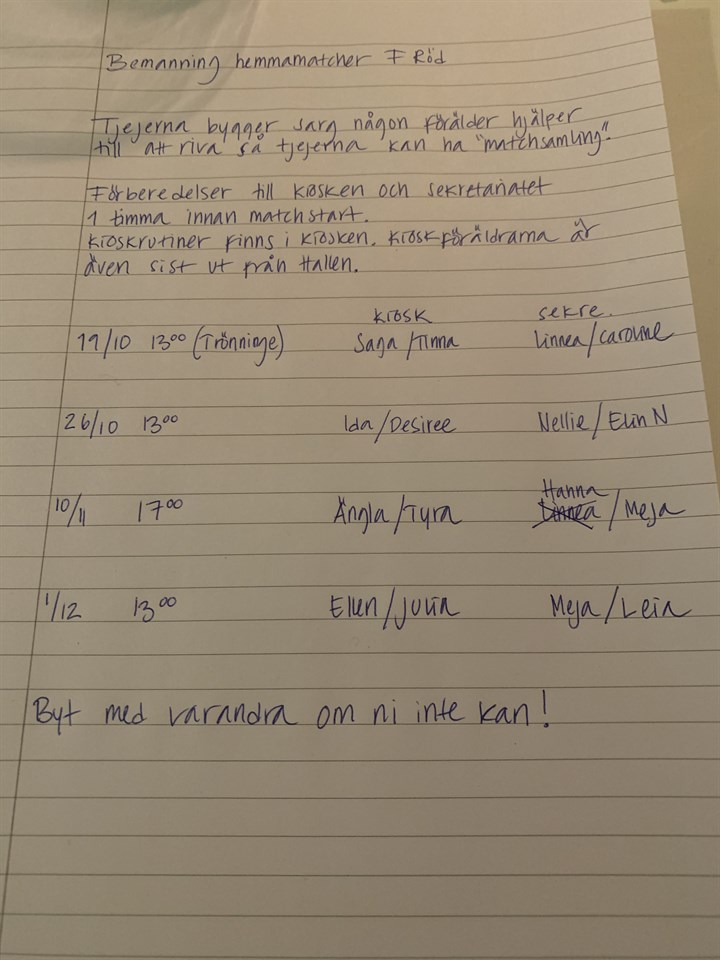 Bemanning hemmamatcher F Röd
Tjejerna bygger sarg någon förälder hjälper
till att riva så tjejerna kan ha "matchsamling".
Förberedelser till kiosken och sekretariatet
1 timma innan matchstart.
Kioskrutiner finns i kiosken. Kioskföräldrarna är
även sist ut från Hallen.
kiosk sekre.
19/10 13⁰⁰ (Trönninge) Saga/Tinna Linnea/Caroline
26/10 13⁰⁰ Ida/Desiree Nellie/Elin N
Hanna
10/11 17⁰⁰ Ängla/Tyra Linnea/Meja
1/12 13⁰⁰ Ellen/Julia Meja/Leia
Byt med varandra om ni inte kan!